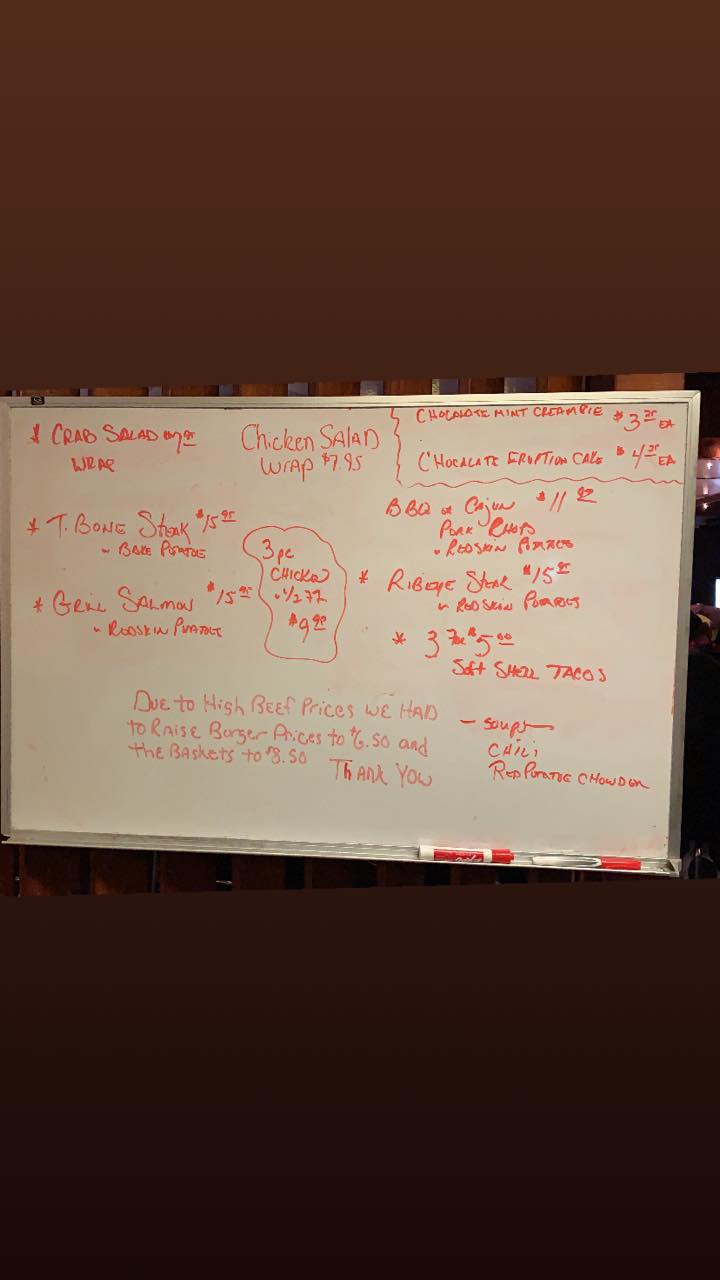 * CRAB SALAD
WRAP
Chicken SALAD
WRAP $7.95
CHOCOLATE MINT CREAMPIE $3 25 EA
CHOCALATE ERUPTION CAKE $4 25 EA
* T. BONE STEAK $15 95
- BAKE POTATOE
* GRILL SALMON $15 95
- REDSKIN POTATOES
3 pc
CHICKEN
$9
BBQ or CAJUN $11
PORK CHOPS
- REDSKIN POTATOES
* RIBEYE STEAK $15 95
- REDSKIN POTATOES
* 3 For $5 00
Soft SHELL TACOS
Due to High BEEF PRICES WE HAD
to RAISE Burger PRices to $6.50 and
the BASkets to $8.50 THANK YOU
- SOUPS -
CHILI
RED POTATOE CHOWDER